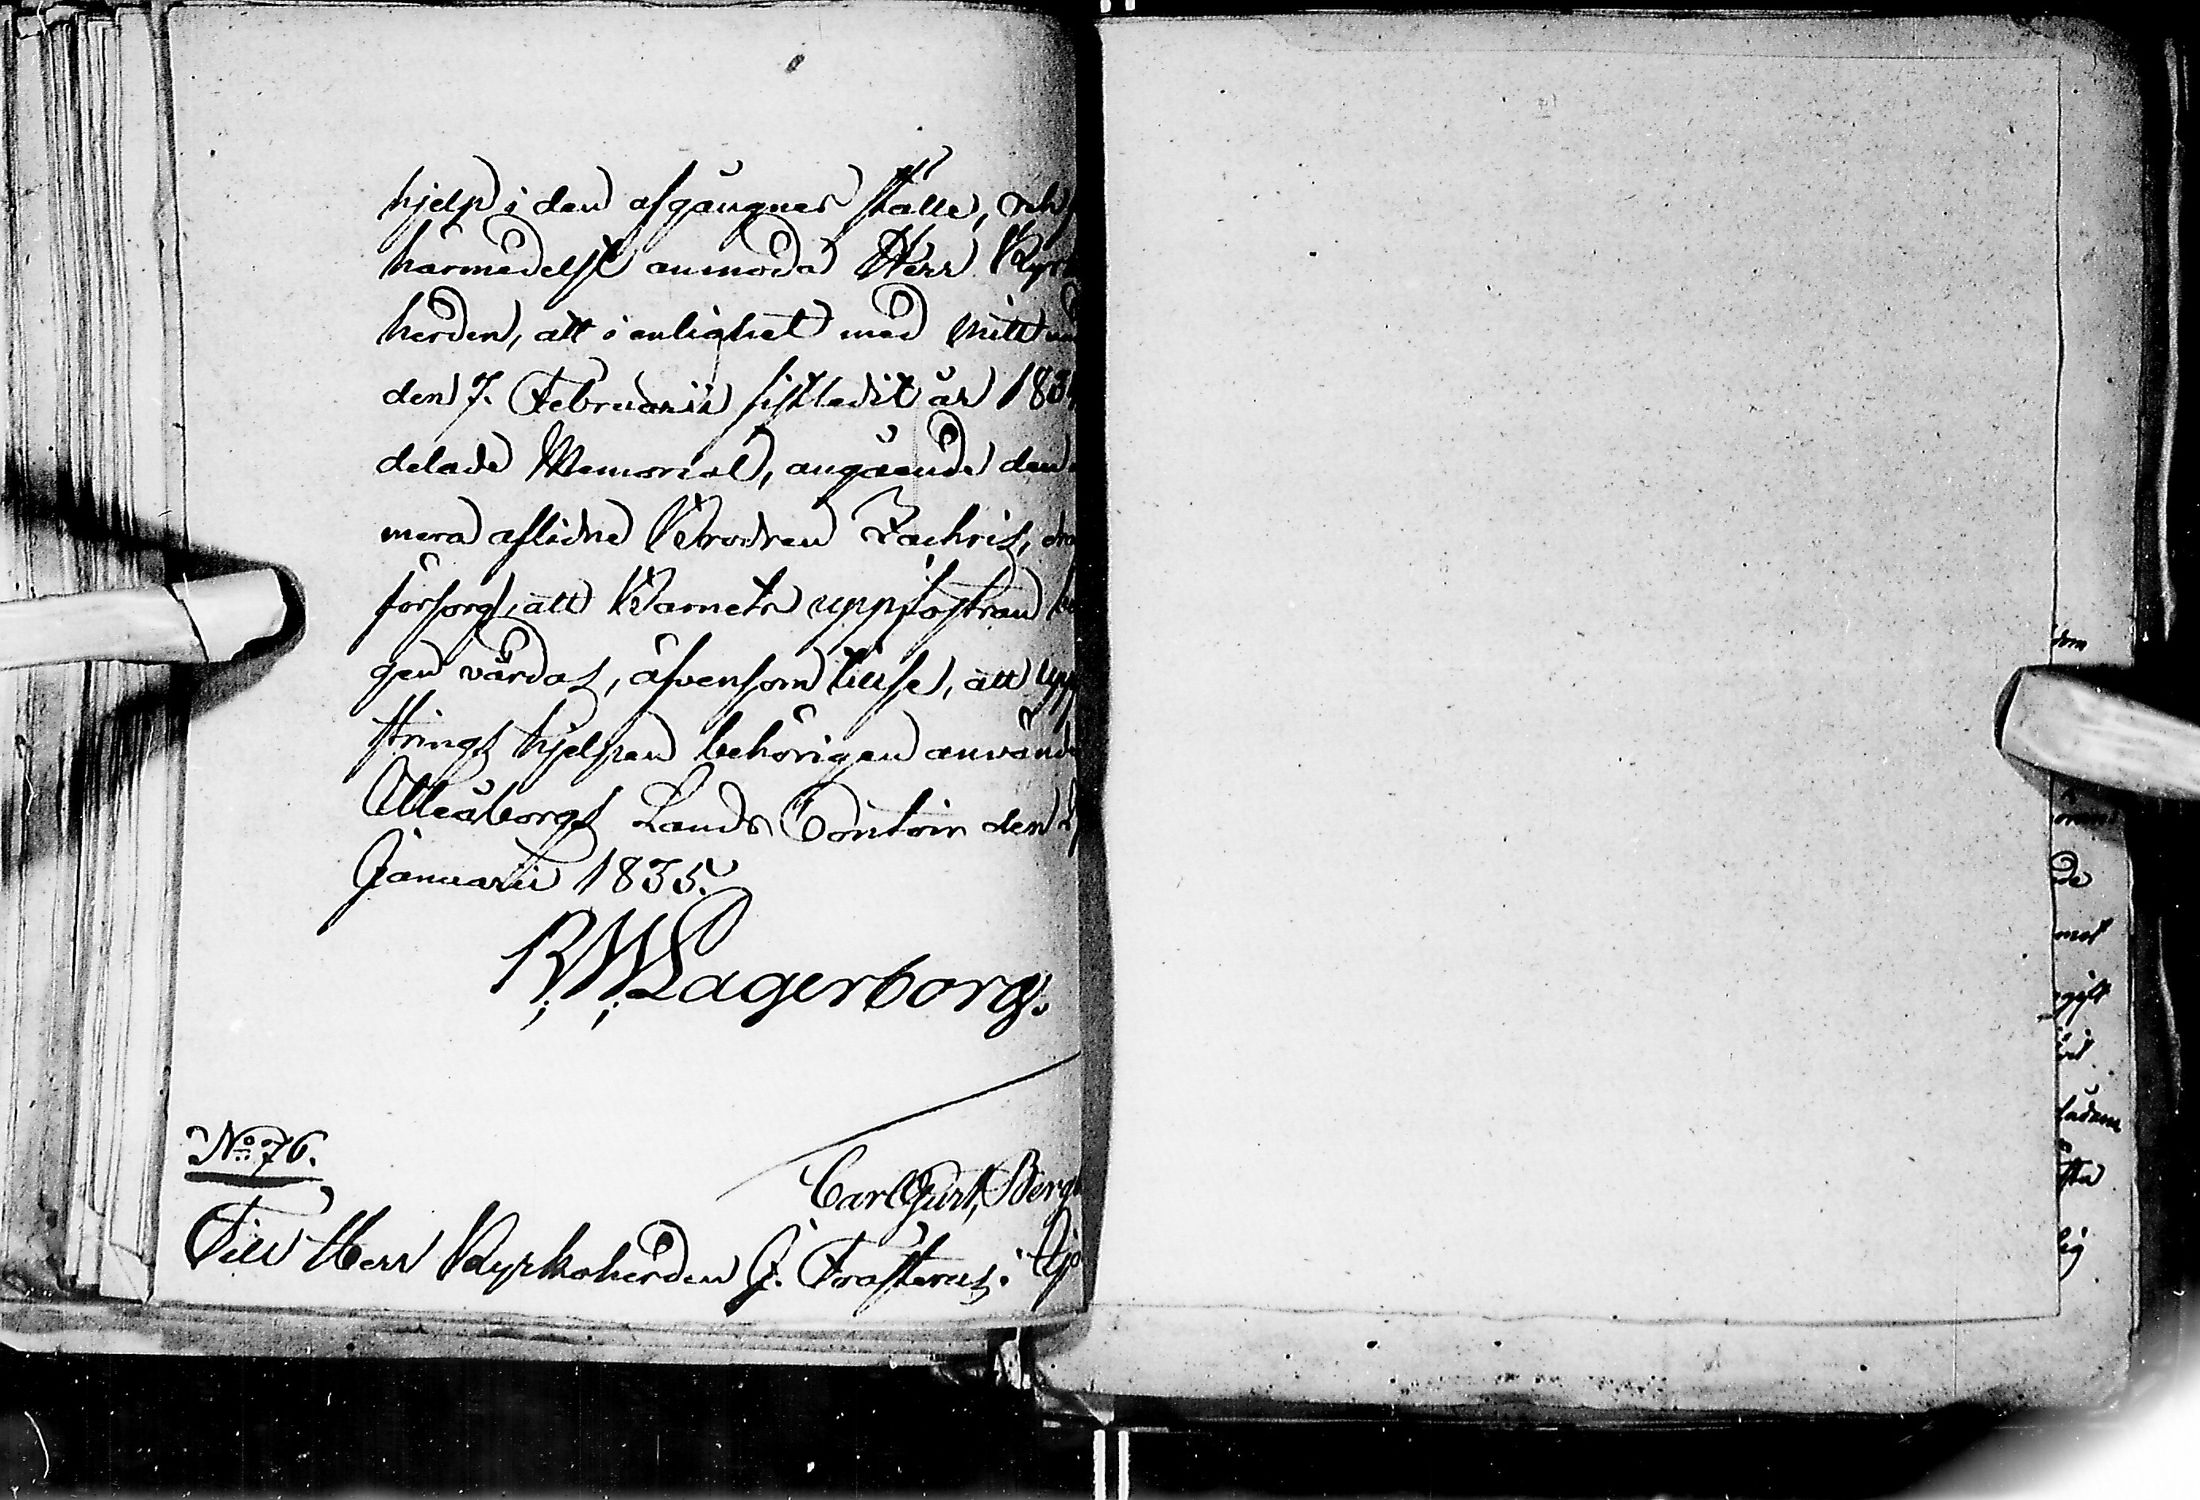 hjelp i den afgångnes ställe, och
härmedelst anmoda Herr Kyr
herden, att i enlighet med Mitt un
den 7. Februarii sistledit år 183
delade Memorial, angående den
mera aflidne Brodren Zachris, dra
försorg, att Barnets uppfostran be
gen vårdas, äfvensom tillse, att upp
strings hjelpen behörigen använd
Uleåborgs Lands Contoir den
Januarii 1835.
R. W. Lagerborg.
No 76.
Carl Gust. Berg
Till Herr Kyrkoherden J. Frosterus, i
dom
de
mot
gift
ladem
sta
lig